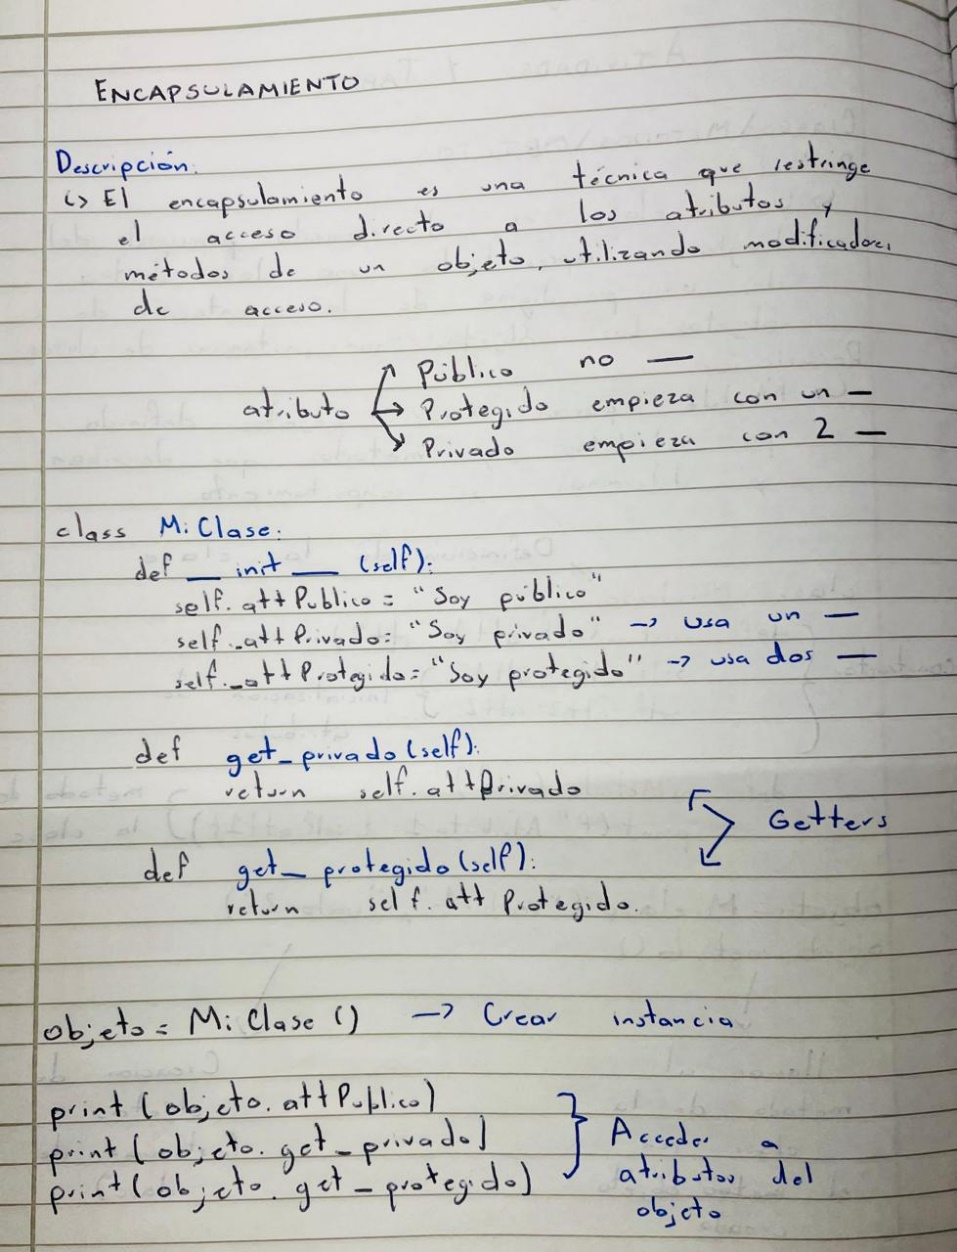 ENCAPSULAMIENTO
Descripción:
↳ El encapsulamiento es una técnica que restringe
el acceso directo a los atributos y
métodos de un objeto, utilizando modificadores
de acceso.
Público no —
atributo → Protegido empieza con un —
Privado empieza con 2 —
class MiClase:
def __init__ (self):
self.attPublico = "Soy público"
self._attPrivado= "Soy privado" → usa un —
self.__attProtegido= "Soy protegido" → usa dos —
def get_privado(self):
return self.attPrivado
Getters
def get_protegido(self):
return self.attProtegido.
objeto = MiClase () → Crear instancia
print (objeto.attPublico)
print (objeto.get_privado)
print (objeto.get_protegido)
Acceder a
atributos del
objeto